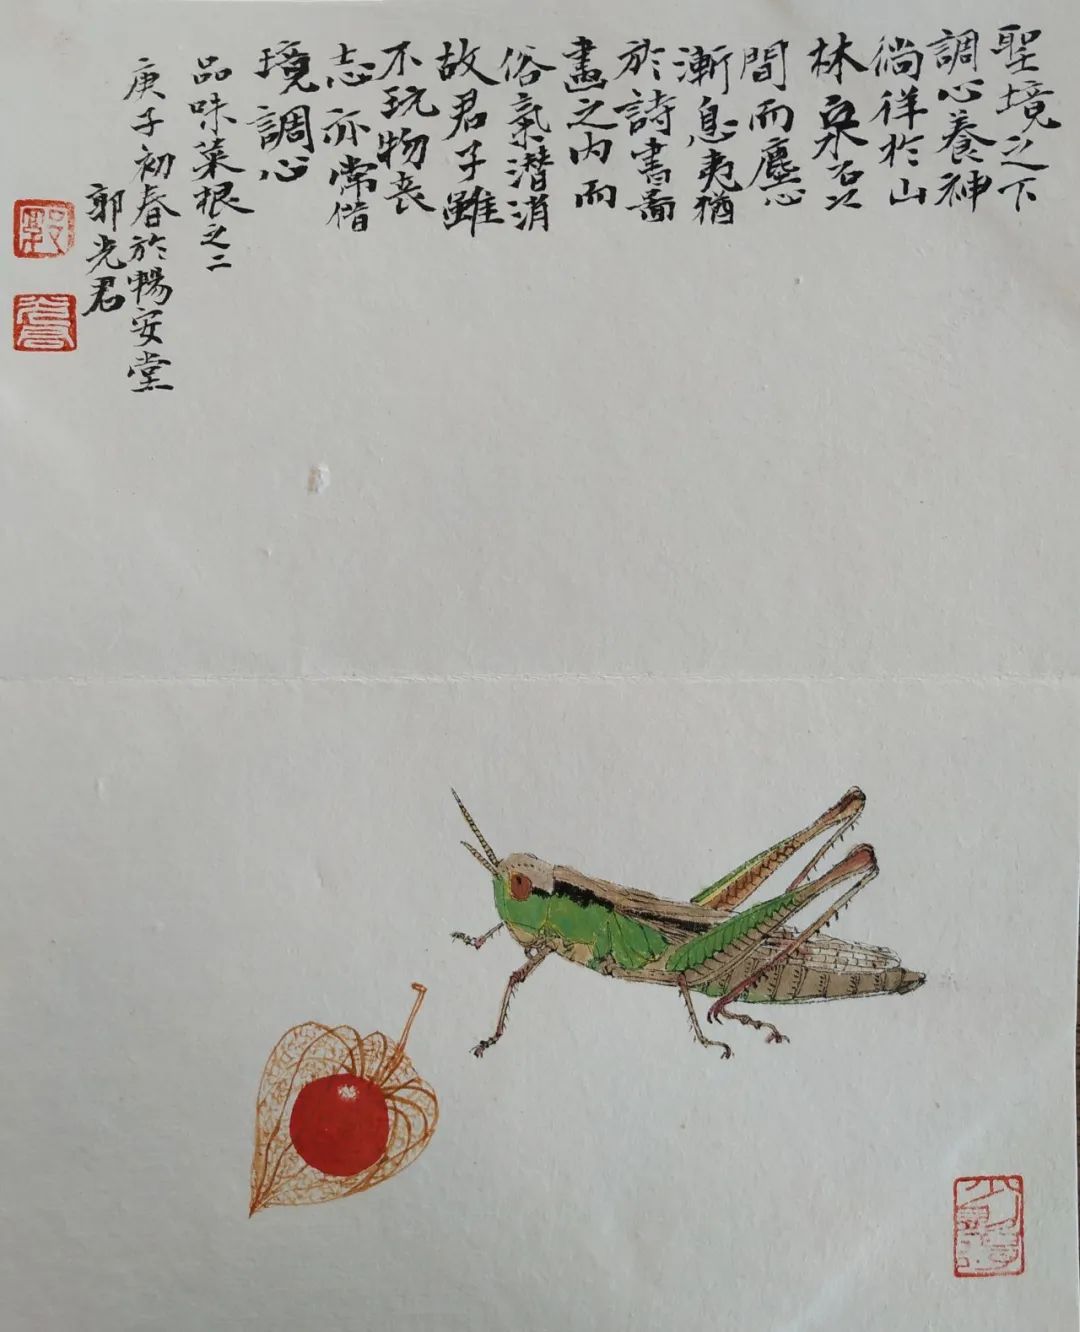 聖境之下
調心養神
徜徉於山
林泉石之
間而塵心
漸息夷猶
於詩書畵
畫之内而
俗氣潛消
故君子雖
不玩物丧
志亦常借
境調心
品味菜根之二
庚子初春於暢安堂
郭光君